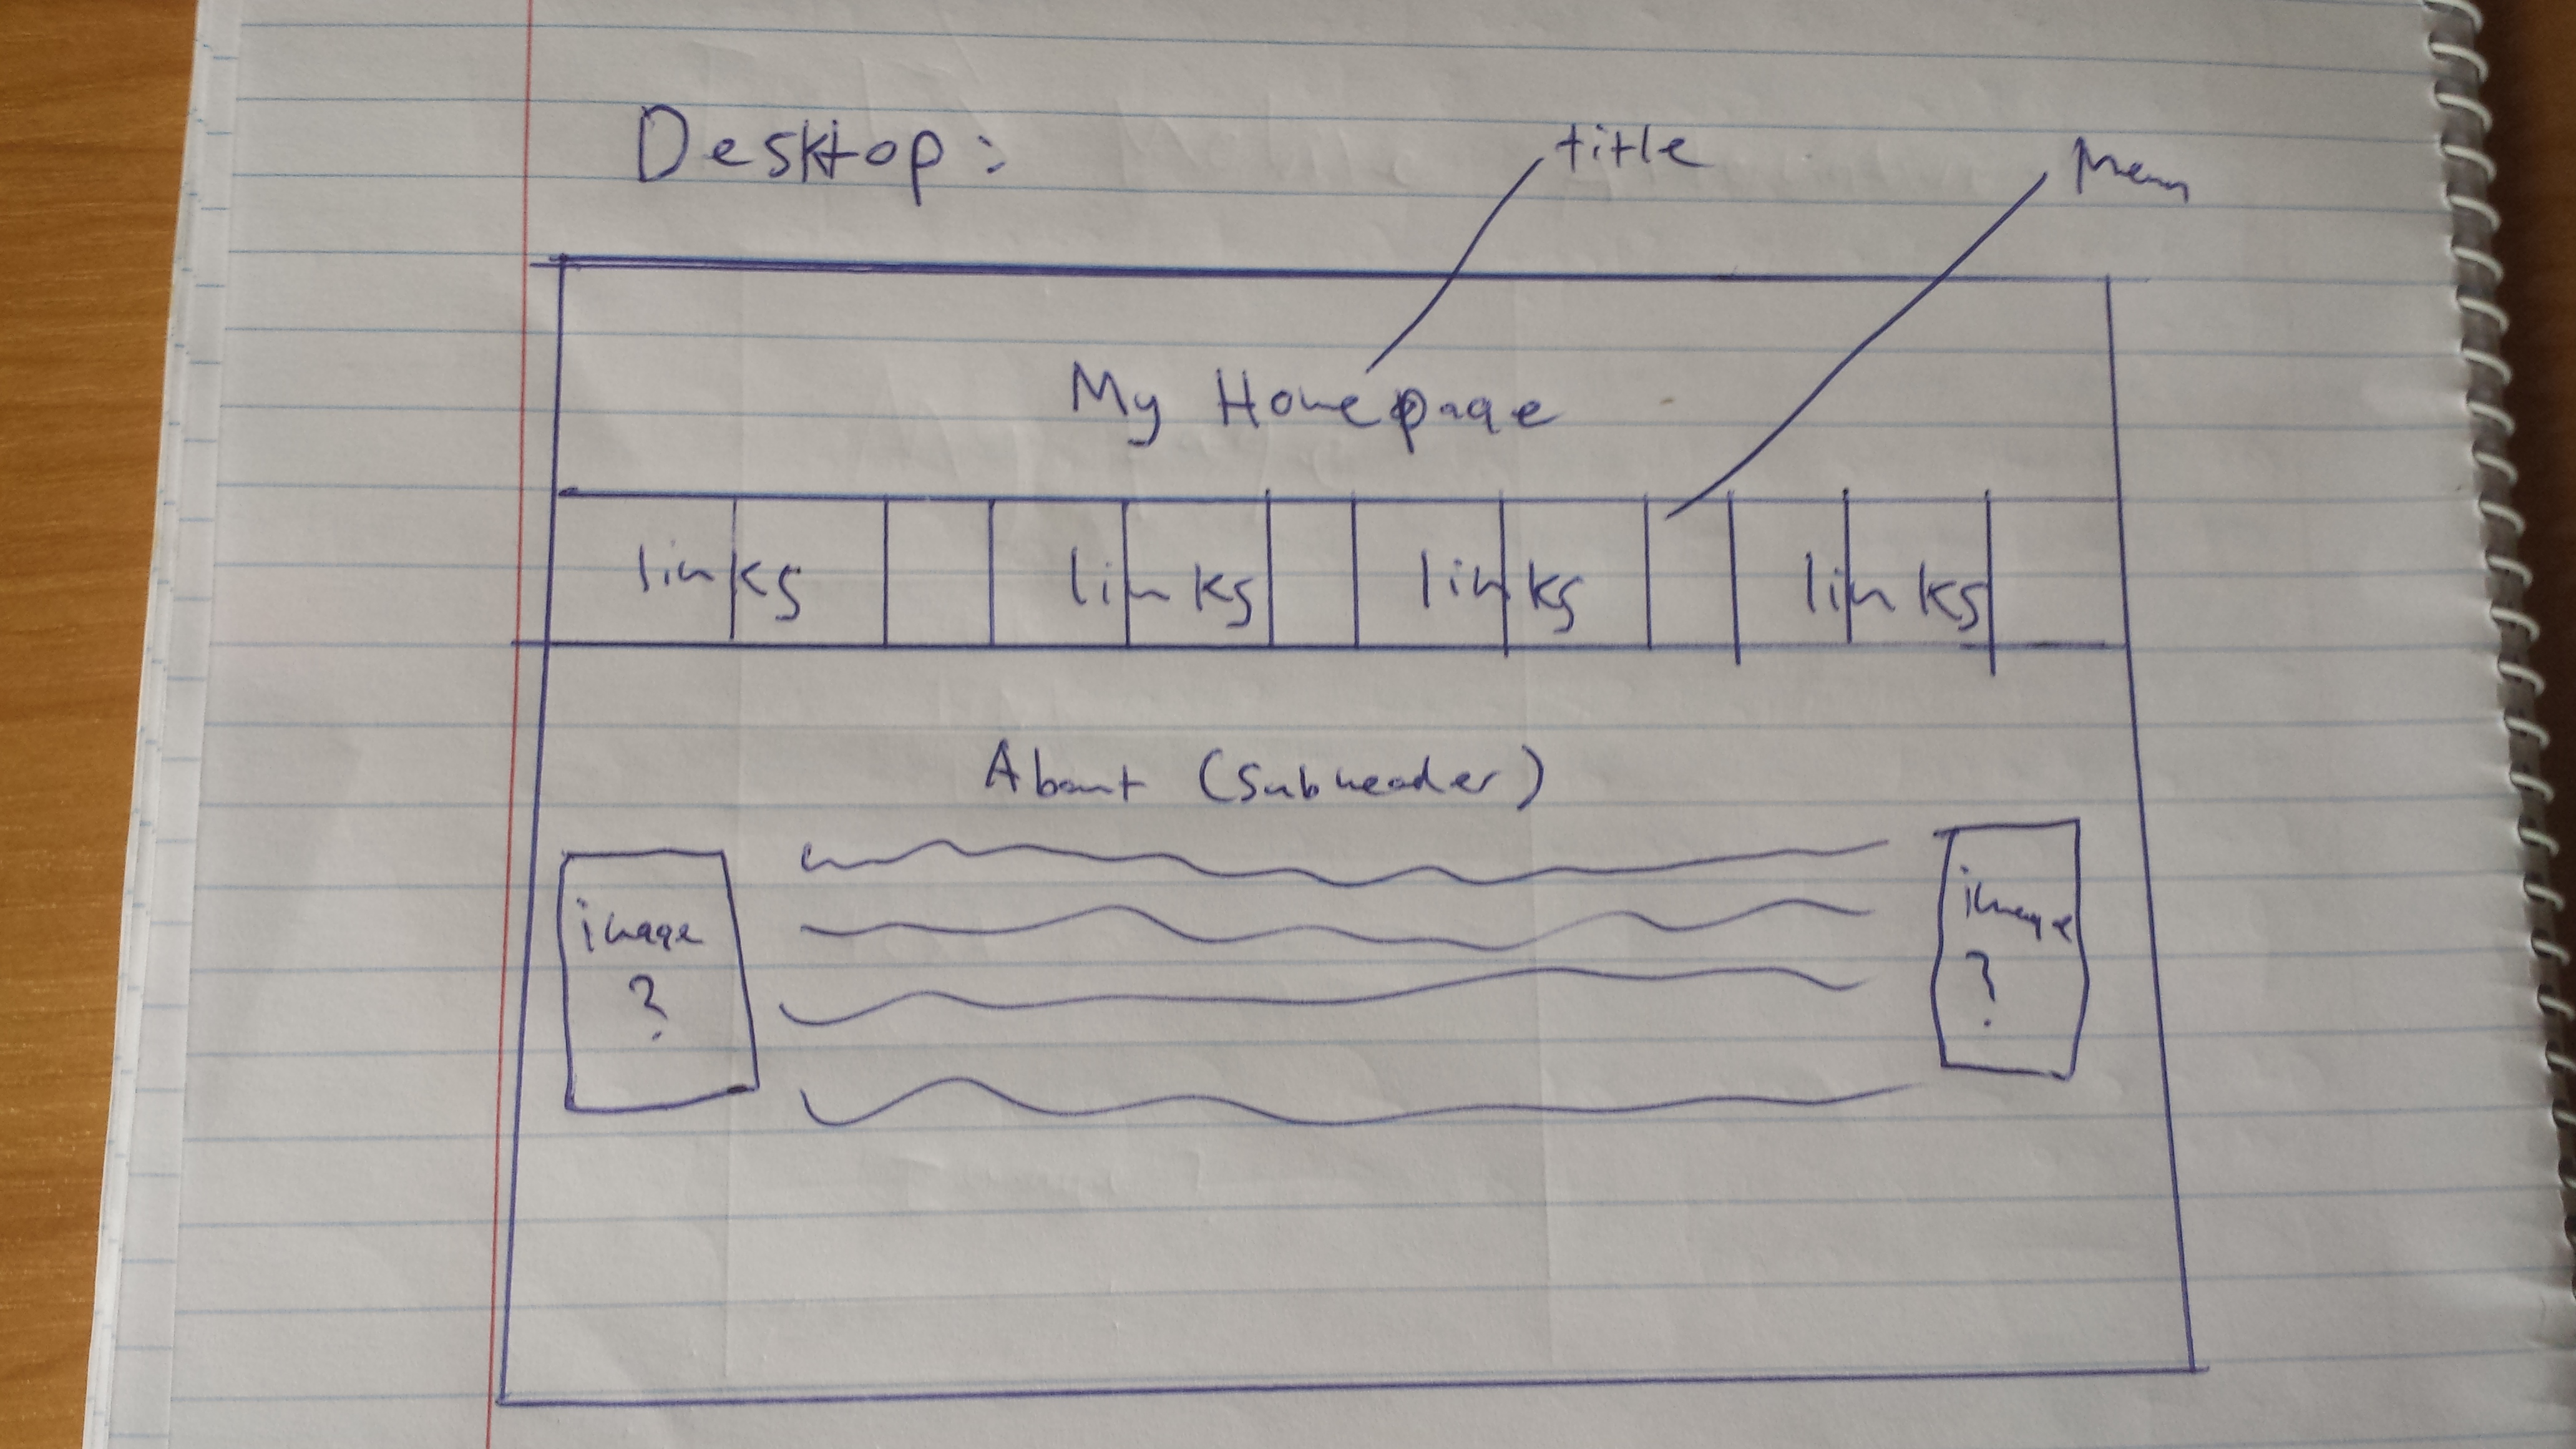 Desktop:
title
Menu
My Homepage
links links links links
About (Subheader)
image
?
image
?